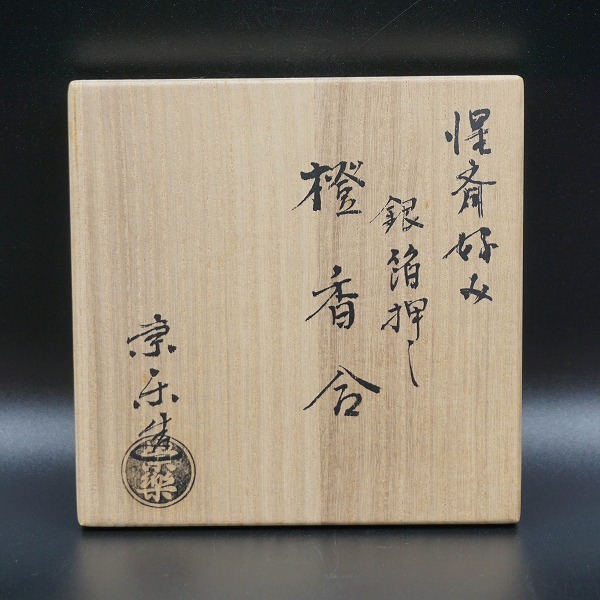 惺斎好み
銀箔押し
橙香合
崇乐造
樂